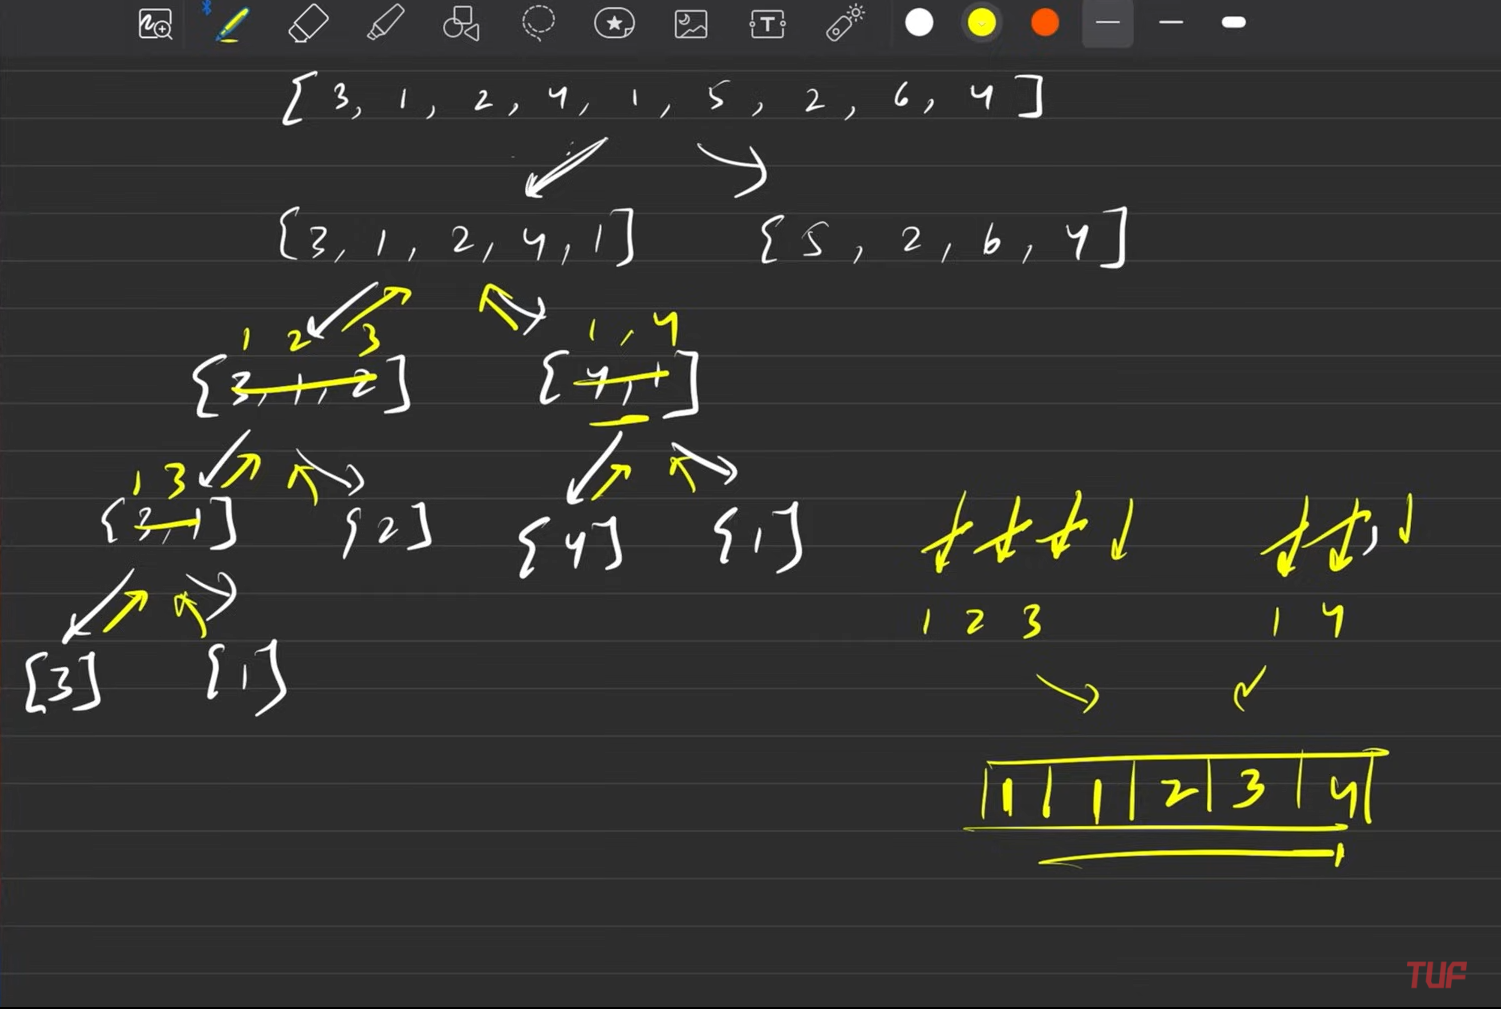 [3, 1, 2, 4, 1, 5, 2, 6, 4]
[3, 1, 2, 4, 1] [5, 2, 6, 4]
1 2 3 1, 4
[3, 1, 2] [4, 1]
1 3
[3, 1] [2] [4] [1]
1 2 3 1 4
[3] [1]
1 | 1 | 2 | 3 | 4
TUF